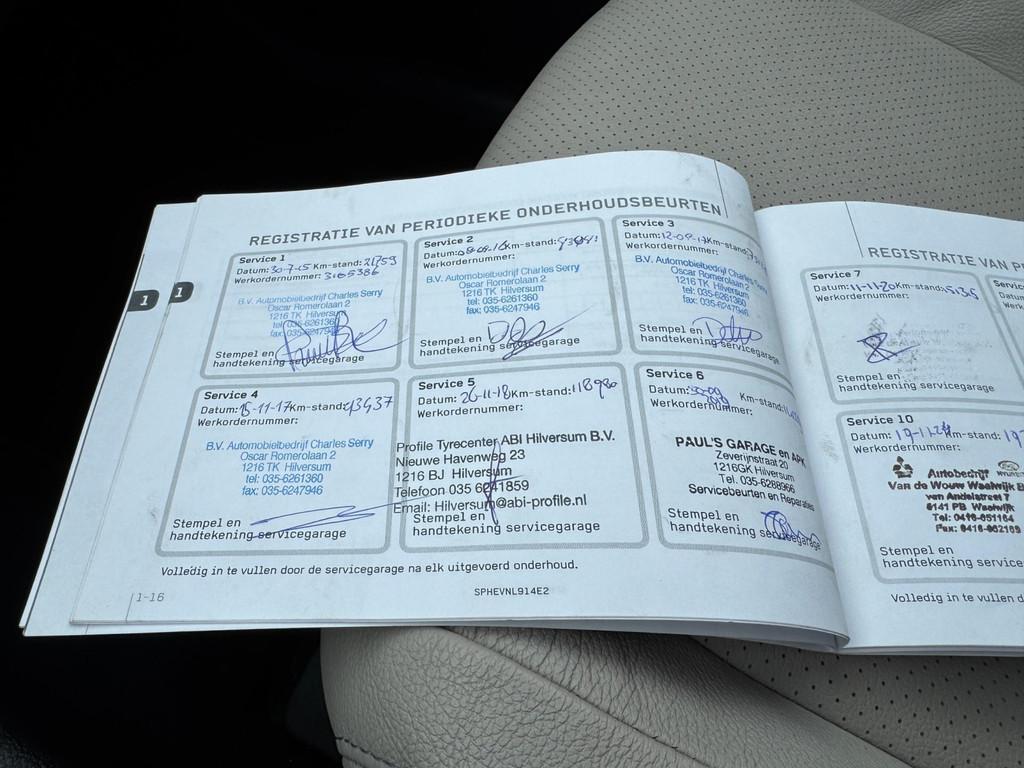 REGISTRATIE VAN PERIODIEKE ONDERHOUDSBEURTEN
Service 1
Datum: 30-7-15 Km-stand: 21753
Werkordernummer: 3105386
B.V. Automobielbedrijf Charles Serry
Oscar Romerolaan 2
1216 TK Hilversum
tel: 035-6261360
fax: 035-6247946
Stempel en
handtekening servicegarage
Service 2
Datum: Km-stand:
Werkordernummer:
B.V. Automobielbedrijf Charles Serry
Oscar Romerolaan 2
1216 TK Hilversum
tel: 035-6261360
fax: 035-6247946
Stempel en
handtekening servicegarage
Service 3
Datum: 12-09-17 Km-stand:
Werkordernummer:
B.V. Automobielbedrijf Charles Serry
Oscar Romerolaan 2
1216 TK Hilversum
tel: 035-6261360
fax: 035-6247946
Stempel en
handtekening servicegarage
Service 4
Datum: 15-11-17 Km-stand:
Werkordernummer:
B.V. Automobielbedrijf Charles Serry
Oscar Romerolaan 2
1216 TK Hilversum
tel: 035-6261360
fax: 035-6247946
Stempel en
handtekening servicegarage
Service 5
Datum: 26-11-18 Km-stand: 118980
Werkordernummer:
Profile Tyrecenter ABI Hilversum B.V.
Nieuwe Havenweg 23
1216 BJ Hilversum
Telefoon 035 6241859
Email: Hilversum@abi-profile.nl
Stempel en
handtekening servicegarage
Service 6
Datum: Km-stand:
Werkordernummer:
PAUL'S GARAGE en APK
Zeverijnstraat 20
1216GK Hilversum
Tel. 035-6288966
Servicebeurten en Reparaties
Stempel en
handtekening servicegarage
Volledig in te vullen door de servicegarage na elk uitgevoerd onderhoud.
1-16
SPHEVNL914E2
1
1
REGISTRATIE VAN
Service 7
Datum: 11-11-20 Km-stand:
Werkordernummer:
Stempel en
handtekening servicegarage
Service 10
Datum: Km-stand:
Werkordernummer:
Autobedrijf
Van de Wouw Waalwijk
van Andelstreet 7
5141 PB Waalwijk
Tel: 0416-651164
Fax: 0416-652169
Stempel en
handtekening
Volledig in te vullen